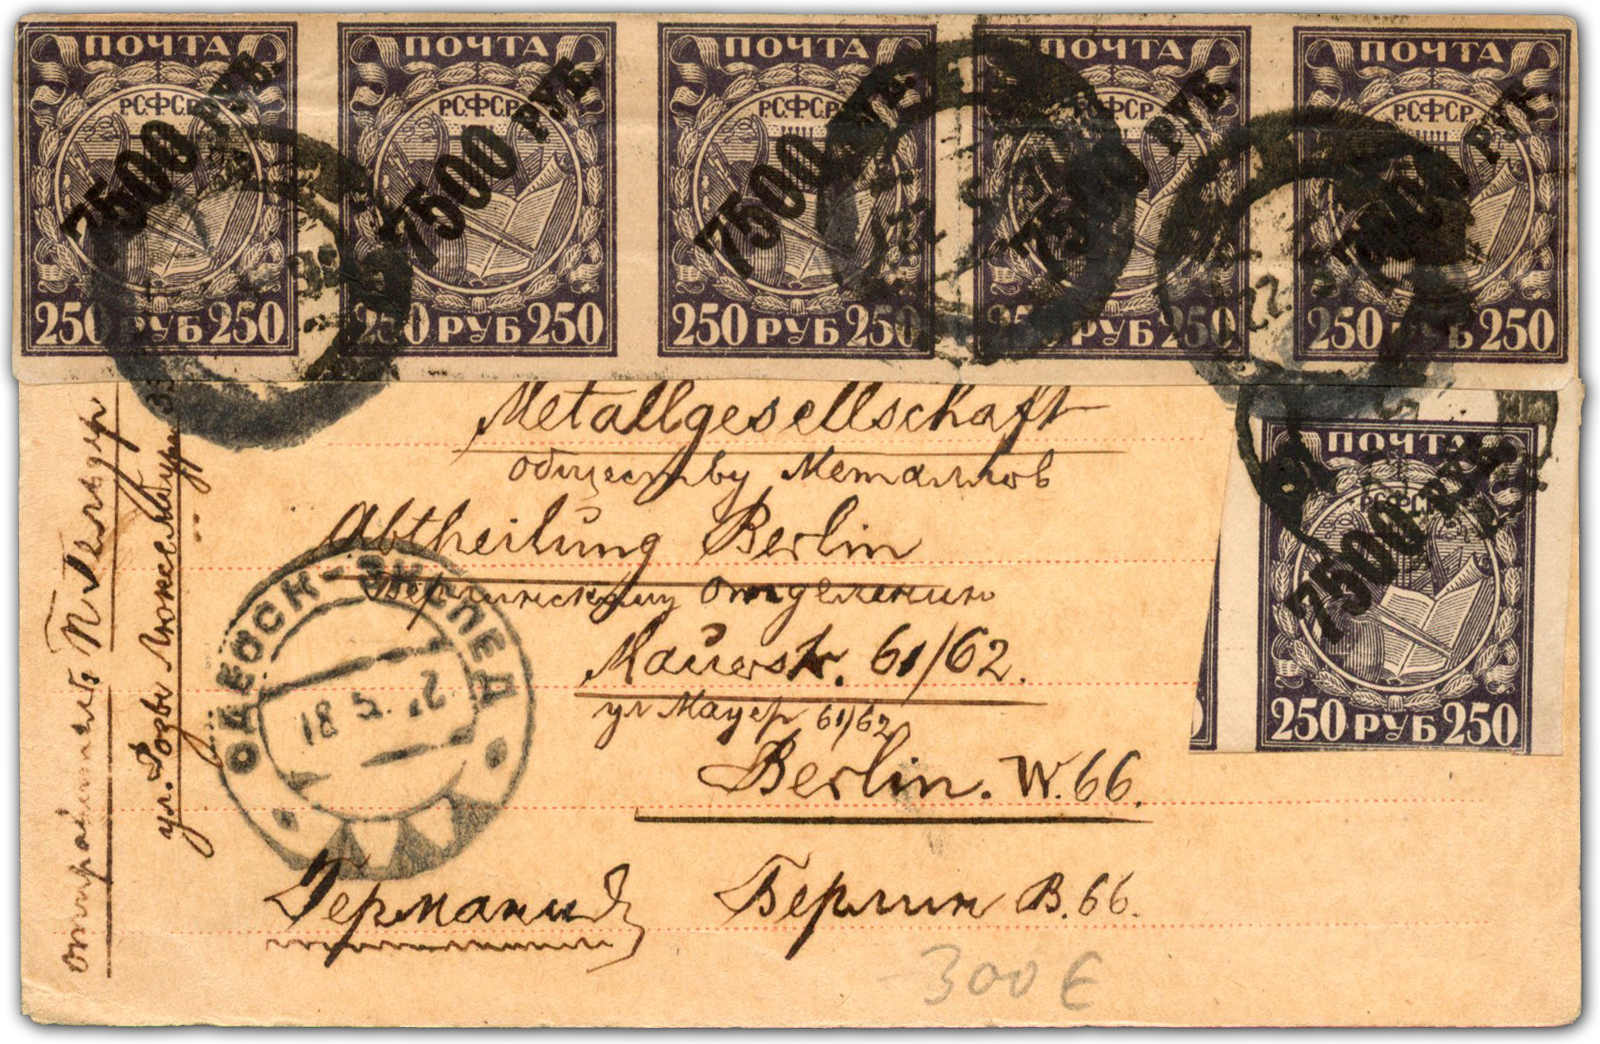 ПОЧТА
7500 РУБ.
Р.С.Ф.С.Р.
250 РУБ 250
ПОЧТА
7500 РУБ.
Р.С.Ф.С.Р.
250 РУБ 250
ПОЧТА
7500 РУБ.
Р.С.Ф.С.Р.
250 РУБ 250
ПОЧТА
7500 РУБ.
Р.С.Ф.С.Р.
250 РУБ 250
ПОЧТА
7500 РУБ.
Р.С.Ф.С.Р.
250 РУБ 250
Metallgesellschaft
обществу Металлов
Abtheilung Berlin
Берлинскому отделению
Mauerstr. 61/62.
ул Мауер 61/62
Berlin. W. 66.
Германия
Берлин В. 66.
300 €
ПОЧТА
7500 РУБ.
Р.С.Ф.С.Р.
250 РУБ 250
ОДЕССК-ЭКСПЕД
18 5 22
отправитель: П Гельдер
ул. Розы Люксембург 33